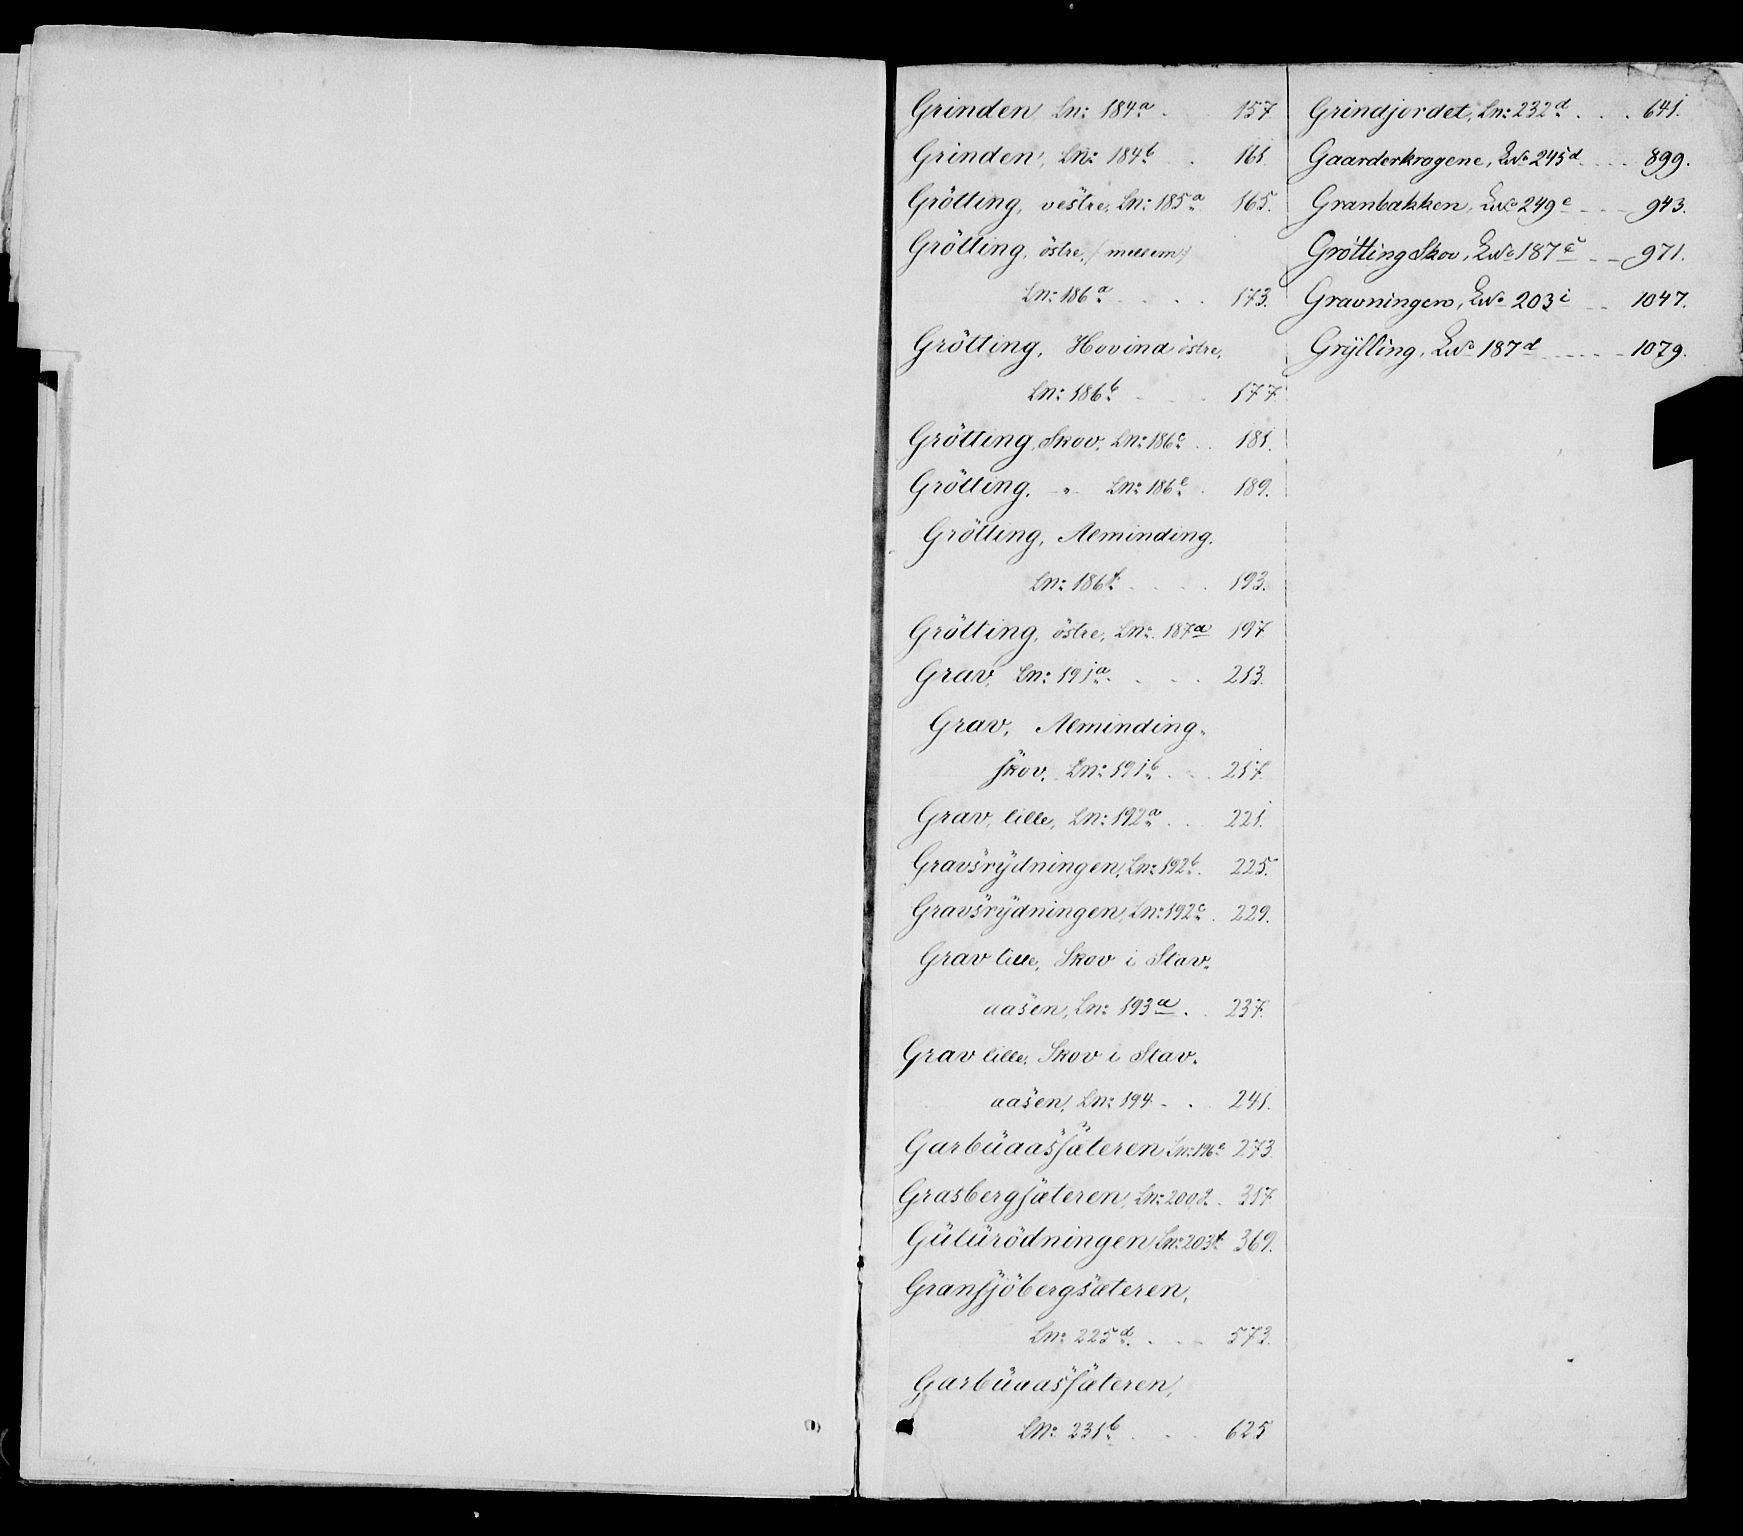 Grinden Ln: 184a . . 157
Grinden, Ln: 184b . 161
Grötting, vestre, Ln: 185a 165.
Grötting, östre, (mellem)
Ln: 186a . . . . 173.
Grötting, Hovind östre,
Ln: 186b . . . 177.
Grötting, Skov, Ln: 186c . . 181.
Grötting, - " - Ln: 186e . 189.
Grötting, Alminding.
Ln: 186f . . . . 193.
Grötting, östre, Ln: 187a 197
Grav, Ln: 191a . . . . 213.
Grav, Alminding-
skov, Ln: 191b . . . 217.
Grav, lille, Ln: 192a . . 221.
Gravsrydningen, Ln: 192b . 225.
Gravsrydningen, Ln: 192c . 229.
Grav lille, Skov i Stav-
aasen, Ln: 193a . . 237.
Grav lille, Skov i Stav-
aasen, Ln: 194 - . 241.
Garbuaassæteren Ln: 196c 273.
Grasbergsæteren, Ln: 200d . 317.
Guturödningen Ln: 203f 369.
Gransjöbergsæteren,
Ln: 225d . . . 573.
Garbuaassæteren,
LN: 231b . . . 625
Grindjordet, Ln: 232d . . . 641.
Gaarderkrogene, LNo 245d . . . 899.
Granbakken, LNo 249e . . . 943.
Grötting Skov, LNo 187c . . 971.
Gravningen, LNo 203i . . 1047.
Grylling, LNo 187d . . . . . 1079.